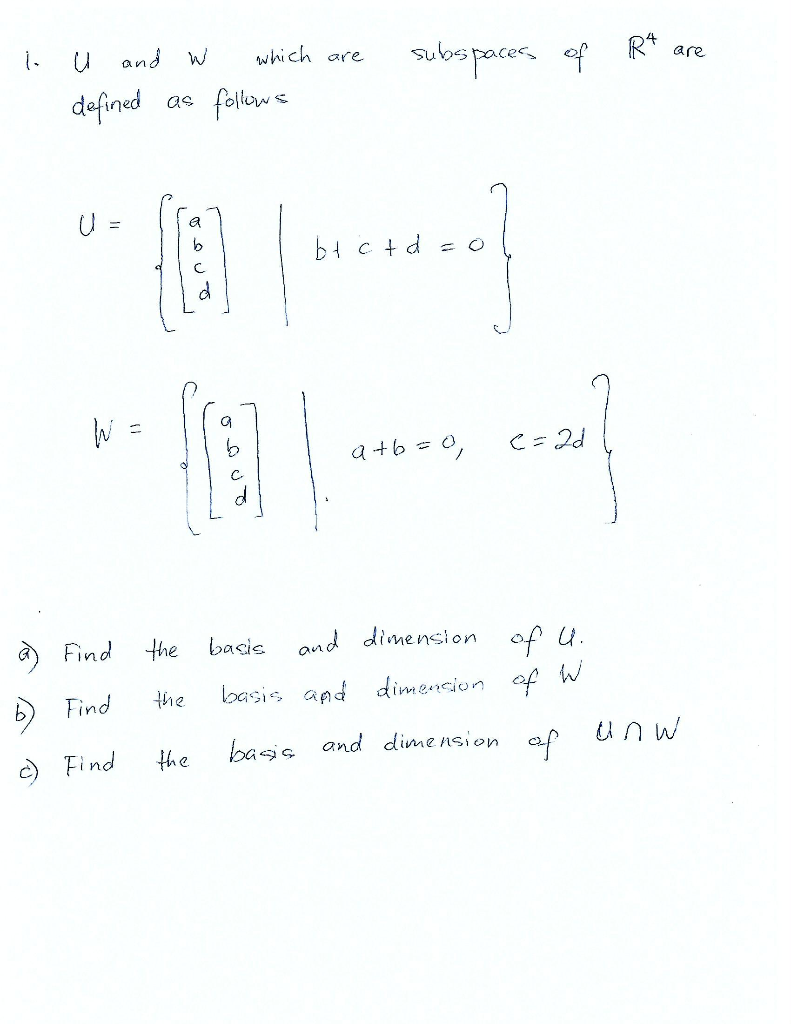 1. U and W which are subspaces of ℝ⁴ are
defined as follows
U = { [a b c d] | b + c + d = 0 }
W = { [a b c d] | a + b = 0, c = 2d }
a) Find the basis and dimension of U.
b) Find the basis and dimension of W
c) Find the basis and dimension of U ∩ W